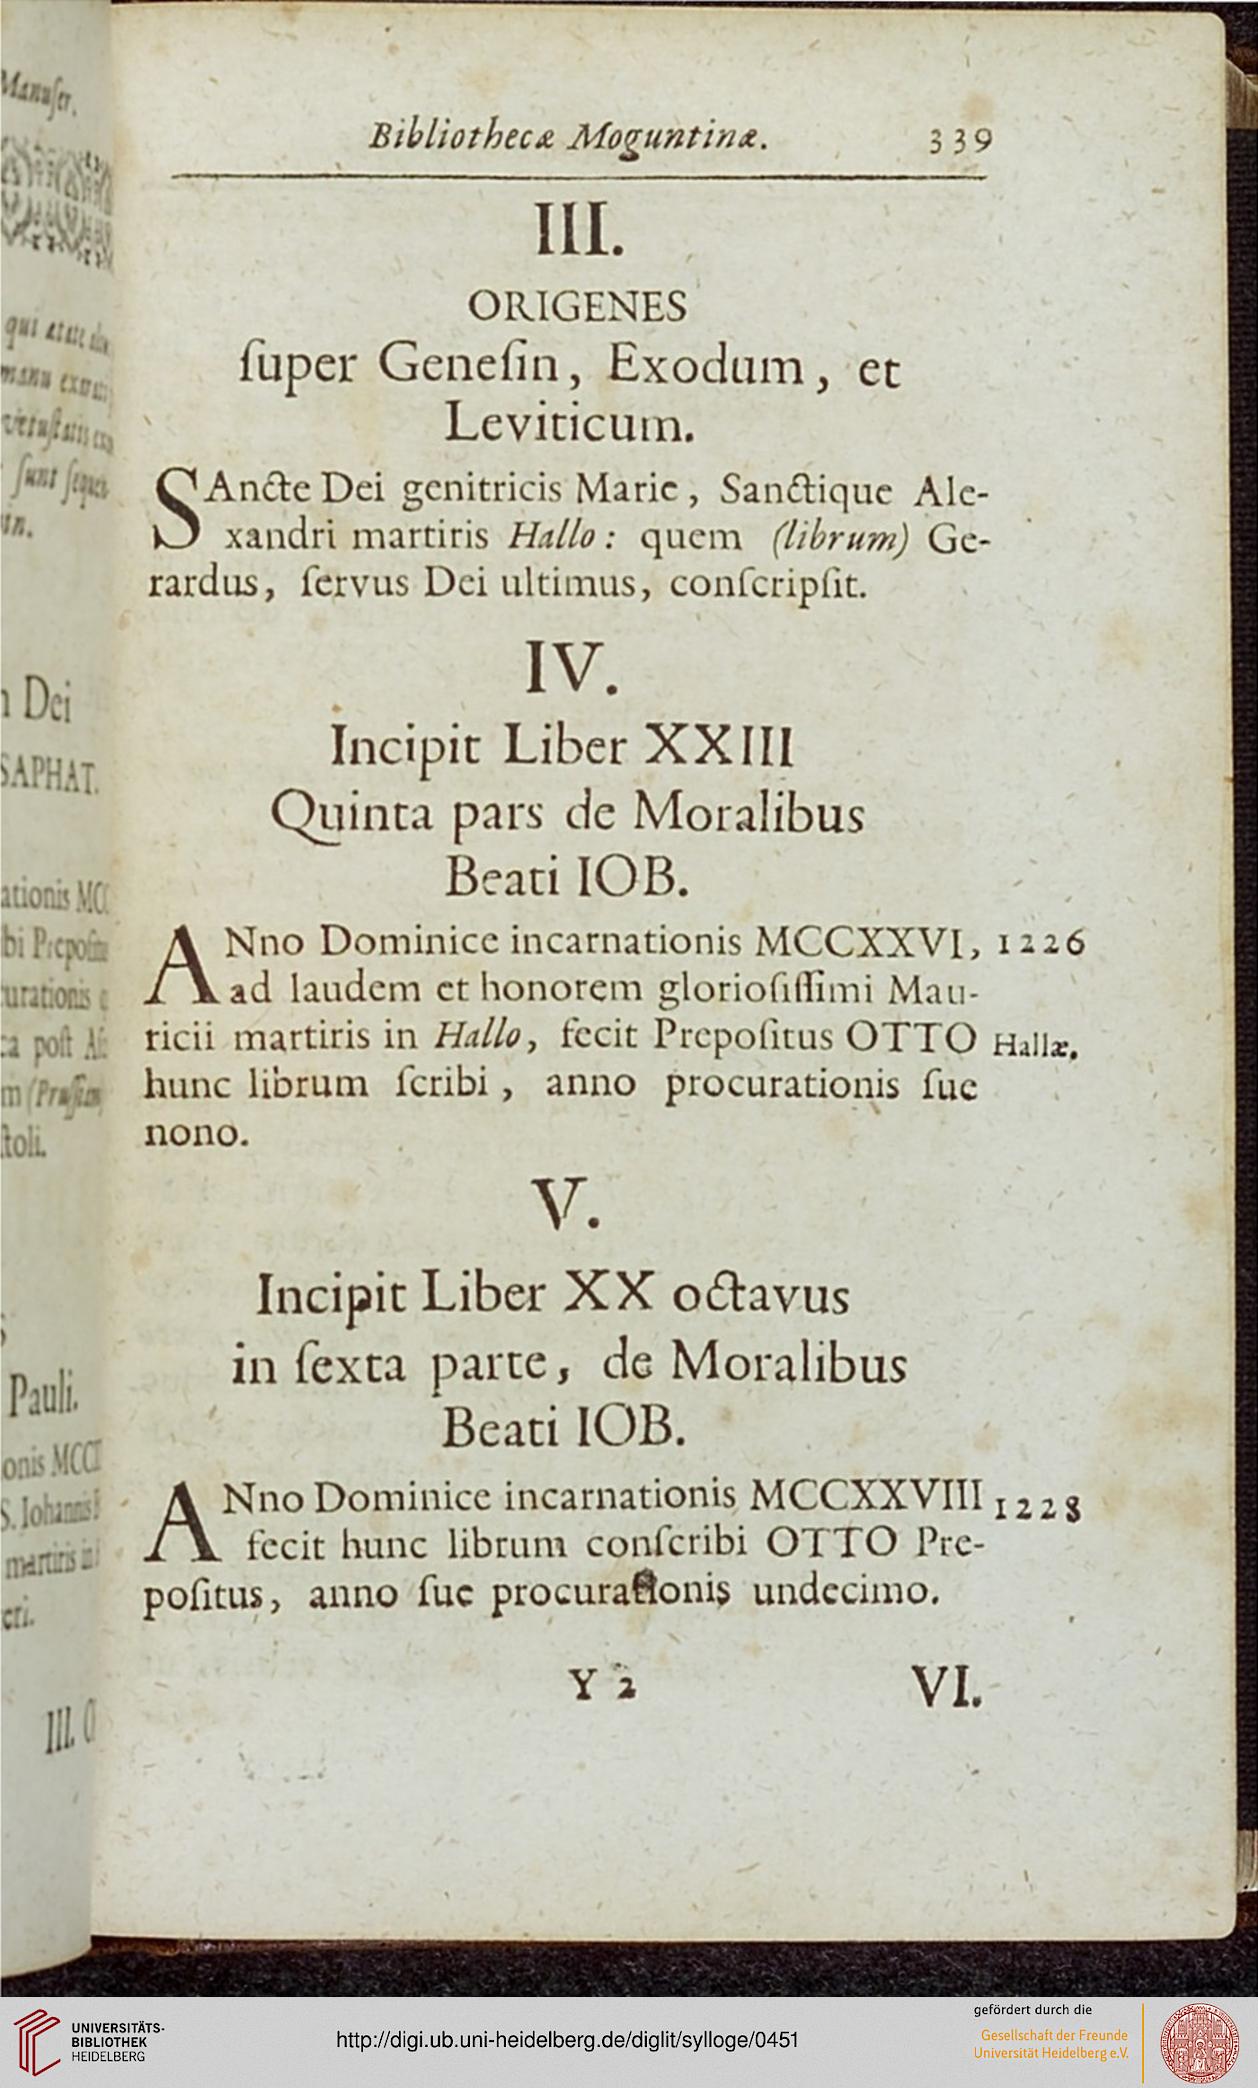 Manuſcr.
qui ætate
manu
vetuſtatis
ſunt
Dei
SAPHAT.
ationis
poſt
toli.
Pauli.
onis
S. Iohannis
martiris
III.
Bibliothecæ Moguntinæ. 339
III.
ORIGENES
ſuper Geneſin, Exodum, et
Leviticum.
SAncte Dei genitricis Marie, Sanctique Ale-
xandri martiris Hallo: quem (librum) Ge-
rardus, ſervus Dei ultimus, conſcripſit.
IV.
Incipit Liber XXIII
Quinta pars de Moralibus
Beati IOB.
ANno Dominice incarnationis MCCXXVI, 1226
ad laudem et honorem glorioſiſſimi Mau-
ricii martiris in Hallo, fecit Prepoſitus OTTO Hallæ.
hunc librum ſcribi, anno procurationis ſue
nono.
V.
Incipit Liber XX octavus
in ſexta parte, de Moralibus
Beati IOB.
ANno Dominice incarnationis MCCXXVIII 1228
fecit hunc librum conſcribi OTTO Pre-
poſitus, anno ſue procurationis undecimo.
Y 2 VI.
UNIVERSITÄTS-
BIBLIOTHEK
HEIDELBERG
http://digi.ub.uni-heidelberg.de/diglit/sylloge/0451
gefördert durch die
Gesellschaft der Freunde
Universität Heidelberg e.V.